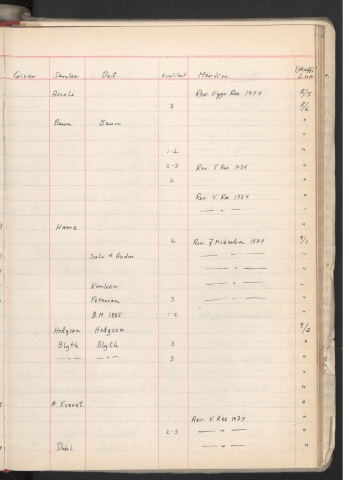 Giver Samler Det. Kvalitet Merkn (skuff) L.nr.
Ascoli Rev. Viggo Ree 1974 5/5
3 5/6
Baun Baun "
"
1-2 "
2-3 Rev. V Ree 1974 "
2 "
Rev. V. Ree 1974 "
— " — "
2 Rev. J Michaelsen 1974 9/1
Salv. & Godm. — " — "
— " — "
— " — "
Petersen 3 — " — "
B.M. 1885 1-2 "
Hodgson Hodgson 9/2
Blyth Blyth 3 "
— " — — " — 3 "
"
"
A. Everet "
Rev. V. Ree 1974 "
2-3 — " — "
Dahl — " — "